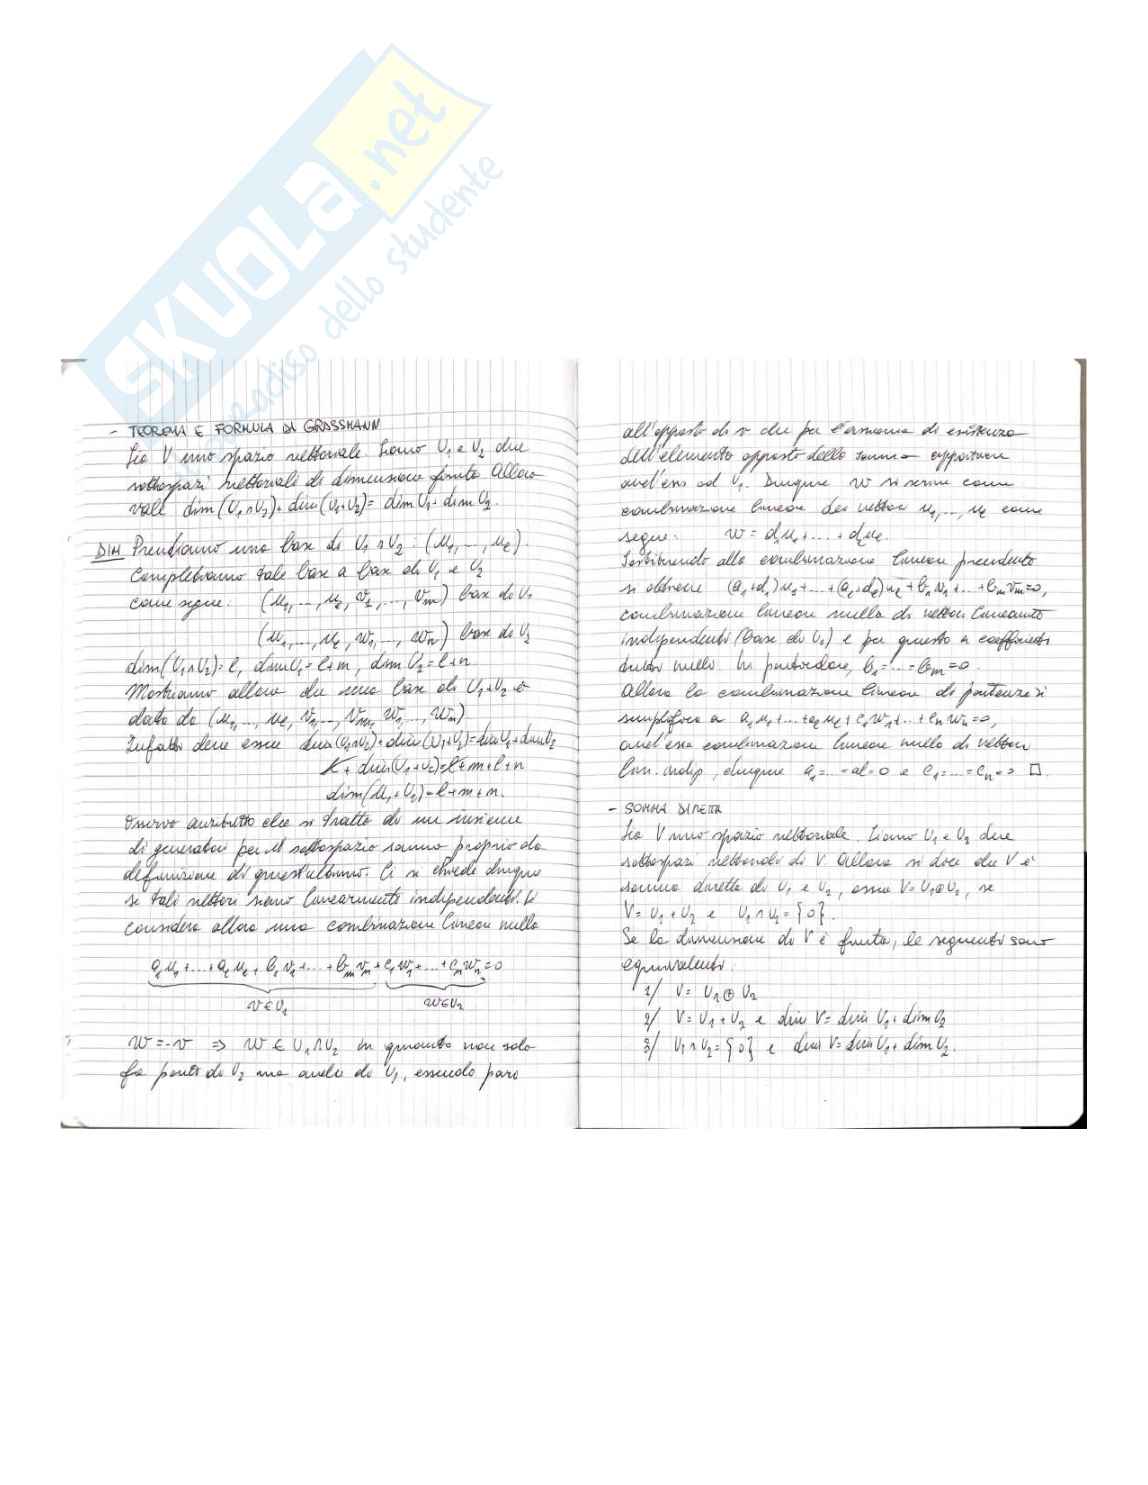 SKUOLA.net
paradiso dello studente
- TEOREMA E FORMULA DI GRASSMANN
Sia V uno spazio vettoriale. Siano U₁ e U₂ due
sottospazi vettoriali di dimensione finita. Allora
vale dim(U₁∩U₂)+dim(U₁+U₂)= dim U₁+dim U₂.
DIM Prendiamo una base di U₁∩U₂: (u₁,...,uℓ).
Completiamo tale base a base di U₁ e U₂
come segue: (u₁,...,uℓ,v₁,...,vm) base di U₁
(u₁,...,uℓ,w₁,...,wn) base di U₂
dim(U₁∩U₂)=ℓ, dim U₁=ℓ+m, dim U₂=ℓ+n.
Mostriamo allora che una base di U₁+U₂ è
data da (u₁,...,uℓ,v₁,...,vm,w₁,...,wn)
Infatti deve essere dim(U₁∩U₂)+dim(U₁+U₂)=dim U₁+dim U₂
ℓ+dim(U₁+U₂)=ℓ+m+ℓ+n
dim(U₁+U₂)=ℓ+m+n.
Osservo anzitutto che si tratta di un insieme
di generatori per il sottospazio somma proprio da
definizione di quest'ultimo. Ci si chiede dunque
se tali vettori siano linearmente indipendenti. Si
considera allora una combinazione lineare nulla
a₁u₁+...+aℓuℓ+b₁v₁+...+bmvm+c₁w₁+...+cnwn=0
v∈U₁ w∈U₂
w=-v ⇒ w∈U₁∩U₂ in quanto non solo
fa parte di U₂ ma anche di U₁, essendo pari
all'opposto di v che per l'assioma di esistenza
dell'elemento opposto della somma appartiene
anch'esso ad U₁. Dunque w si scrive come
combinazione lineare dei vettori u₁,...,uℓ come
segue: w=d₁u₁+...+dℓuℓ.
Sostituendo alla combinazione lineare precedente
si ottiene (a₁+d₁)u₁+...+(aℓ+dℓ)uℓ+b₁v₁+...+bmvm=0,
combinazione lineare nulla di vettori linearmente
indipendenti (base di U₁) e per questo a coefficienti
tutti nulli. In particolare, b₁=...=bm=0.
Allora la combinazione lineare di partenza si
semplifica a a₁u₁+...+aℓuℓ+c₁w₁+...+cnwn=0,
anch'essa combinazione lineare nulla di vettori
lin. indip, dunque a₁=...=aℓ=0 e c₁=...=cn=0 □.
- SOMMA DIRETTA
Sia V uno spazio vettoriale. Siano U₁ e U₂ due
sottospazi vettoriali di V. Allora si dice che V è
somma diretta di U₁ e U₂, ossia V=U₁⊕U₂, se
V=U₁+U₂ e U₁∩U₂={0}.
Se la dimensione di V è finita, le seguenti sono
equivalenti:
1/ V=U₁⊕U₂
2/ V=U₁+U₂ e dim V=dim U₁+dim U₂
3/ U₁∩U₂={0} e dim V=dim U₁+dim U₂.